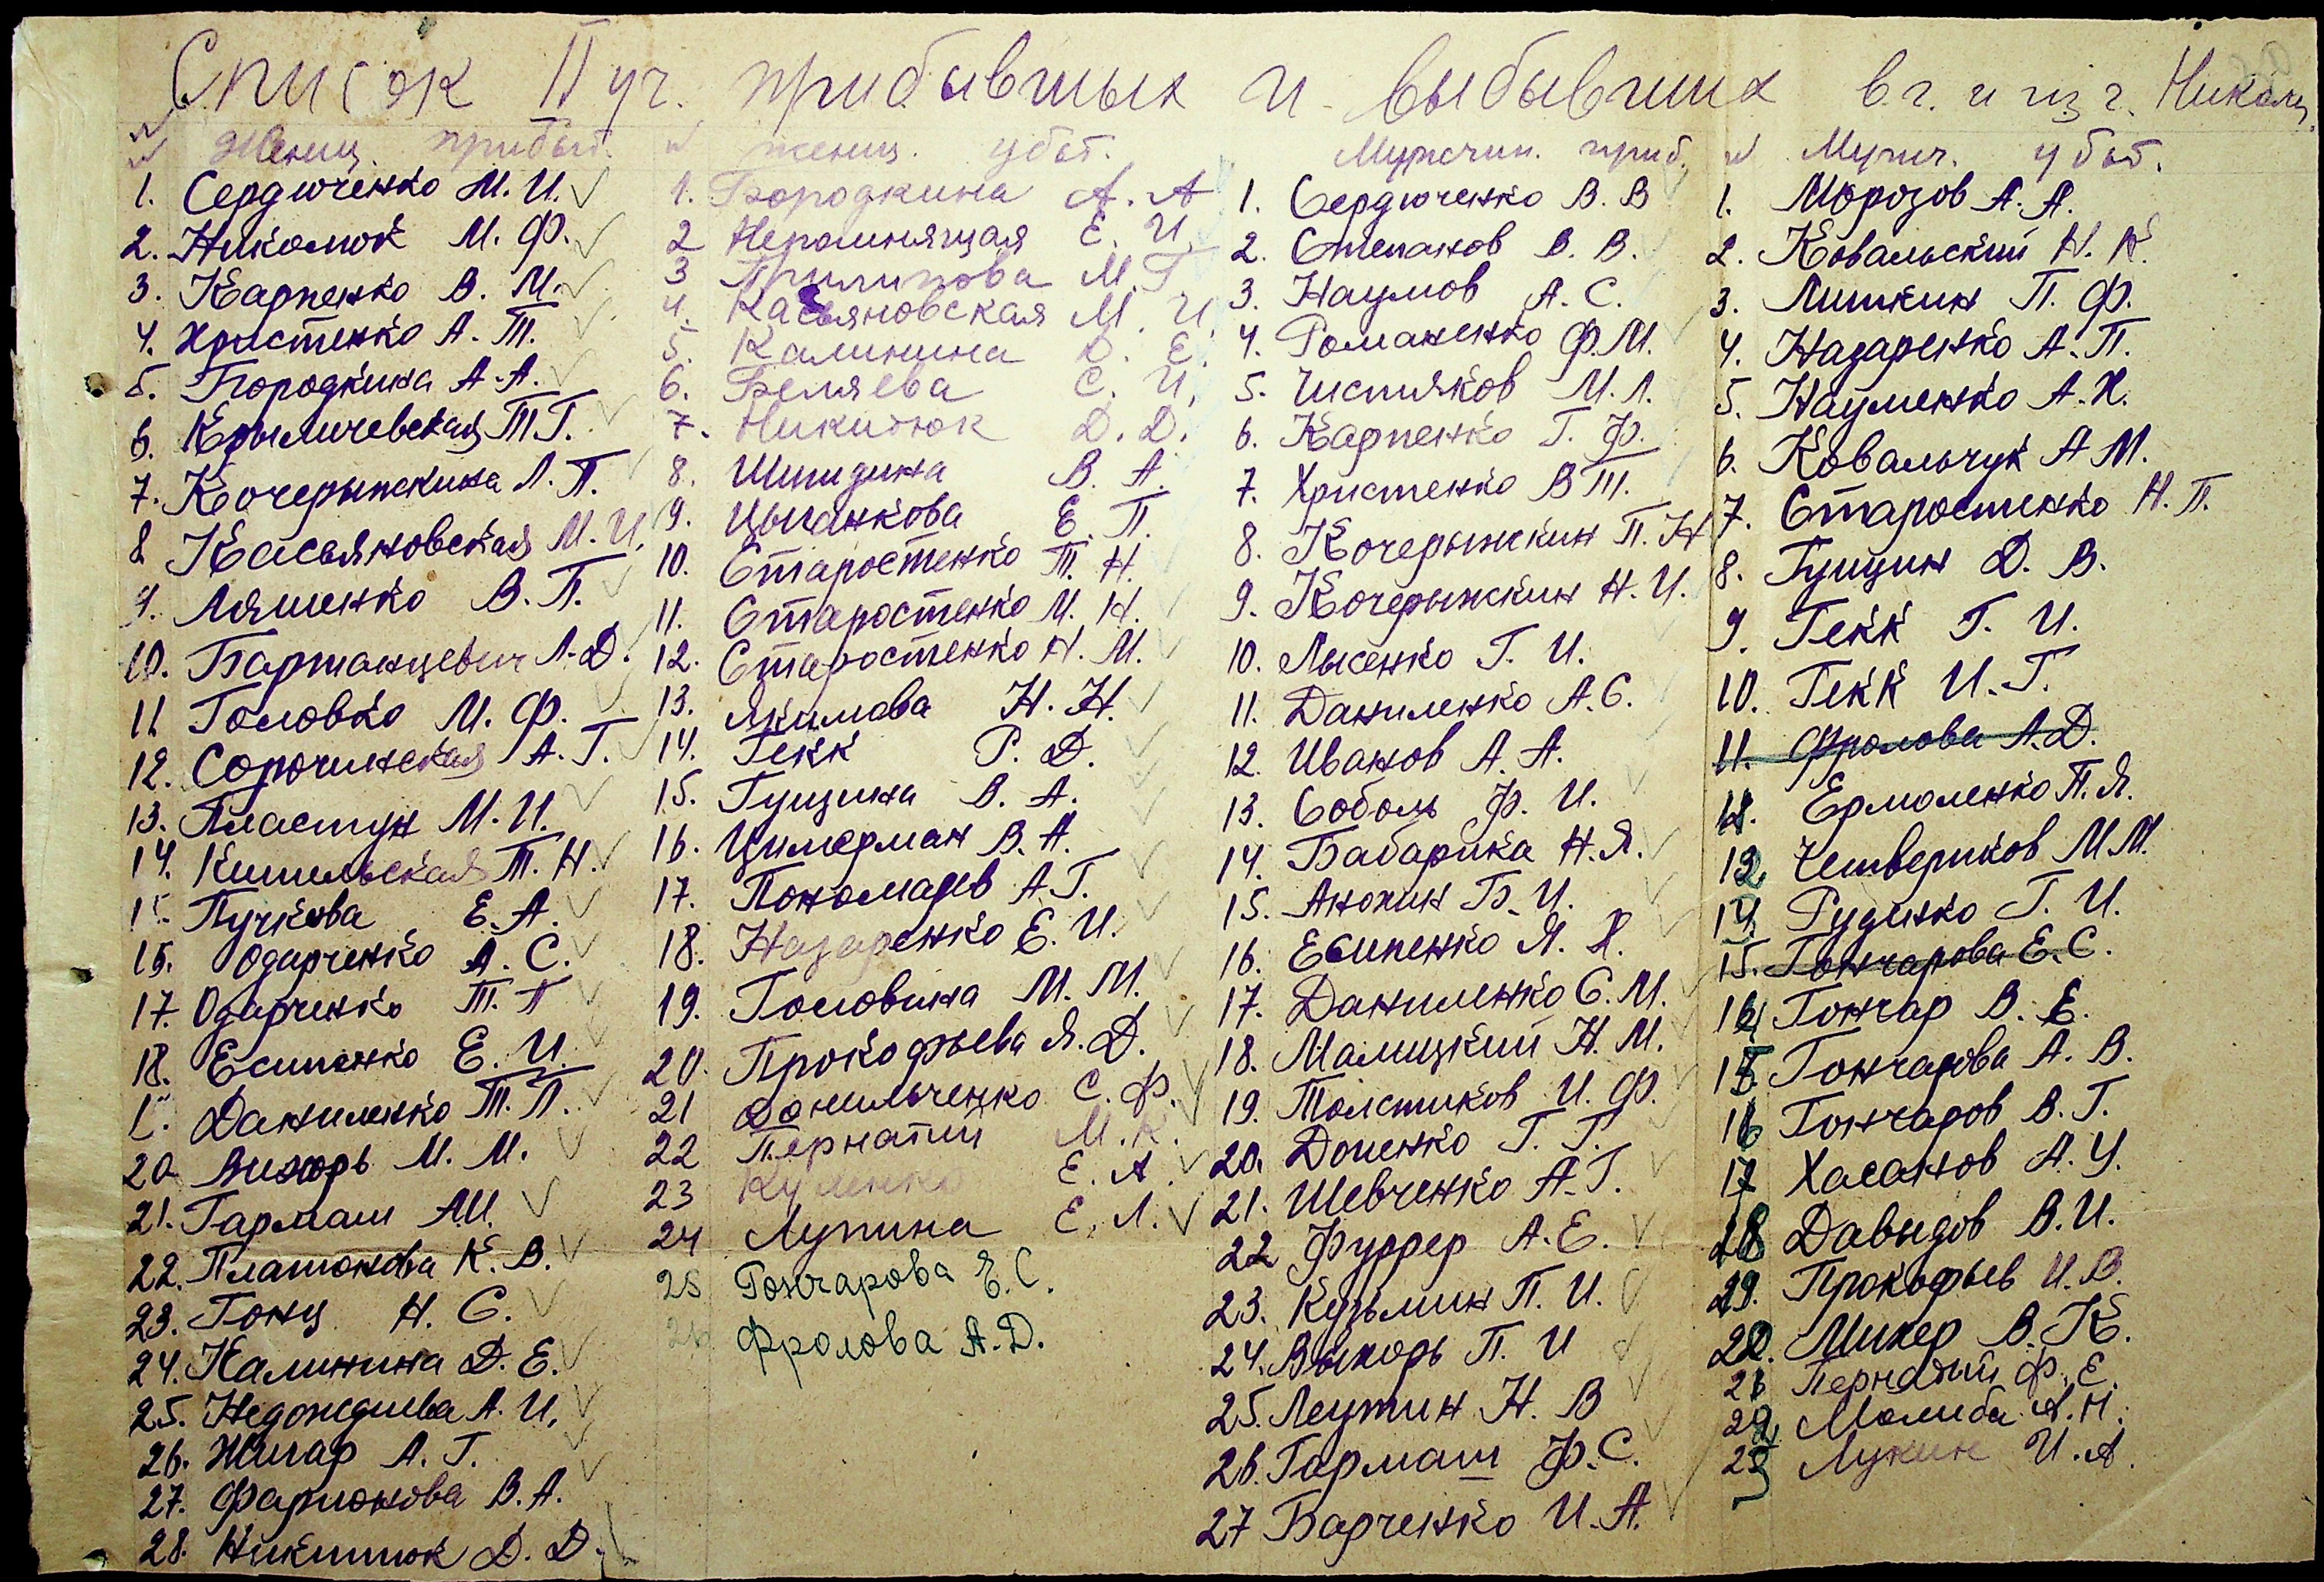 Список II уч. прибывших и выбывших в г. и из г. Никол.
№ Женщ. прибыт.
1. Сердюченко М. И.
2. Николюк М. Ф.
3. Карпенко В. М.
4. Христенко А. Т.
5. Бородкина А. А.
6. Крыличевская Т. Г.
7. Кочерыжкина Л. П.
8 Касьяновская М. И.
9. Ляшенко В. П.
10. Бартанцевич Л. Д.
11 Головко М. Ф.
12. Сорочинская А. Г.
13. Пластун М. И.
14. Кительская Т. Н.
15. Пучкова Е. А.
16. Одарченко А. С.
17. Одарченко Т. П
18. Есипенко Е. И.
Даниленко Т. П.
20 Вихорь М. М.
21. Гармаш А.И.
22. Платонова К. В.
23. Гонц Н. С.
24. Калинина Д. Е.
25. Недождиева А. И.
26. Жигар А. Г.
27. Фарионова В. А.
28. Никитюк Д. Д.
№ женщ. убыт.
1. Бородкина А. А
2 Непомнящая Е. И.
3 Прилипова М. Г.
4. Касьяновская М. И.
5. Калинина Д. Е.
6. Беляева С. И.
7. Никитюк Д. Д.
8. Шишдина В. А.
9. Цыганкова Е. П.
10. Старостенко Т. Н.
11. Старостенко М. Н.
12. Старостенко Н. М.
13. Якимова Н. Н.
14. Гекк Р. Д.
15. Гущина В. А.
16. Цимерман В. А.
17. Пономарев А. Г.
18. Назаренко Е. И.
19. Головина М. М.
20. Прокофьева Я. Д.
21 Данильченко С. Ф.
22 Пернатий М. К.
23 Куленко Е. А.
24 Лупина Е. Л.
25 Гончарова Е. С.
26 Фролова А. Д.
Мужчин. приб.
1. Сердюченко В. В
2. Степанов В. В.
3. Наумов А. С.
4. Романенко Ф. М.
5. Чистяков М. Л.
6. Карпенко Г. Ф.
7. Христенко В Т.
8. Кочерыжкин П. Н
9. Кочерыжкин Н. И.
10. Лысенко Г. И.
11. Даниленко А. С.
12. Иванов А. А.
13. Соболь Ф. И.
14. Бабарика Н. Я.
15. Анохин Б. И.
16. Есипенко Я. Х.
17. Даниленко С. М.
18. Малицкий Н. М.
19. Толстиков И. Ф.
20. Доненко Г. Г.
21. Шевченко А. Г.
22 Фуррер А. Е.
23. Кузьмин П. И.
24. Вихорь П. И
25. Леутин Н. В
26. Гармаш Ф. С.
27 Барченко И. А.
№ Мужч. убыт.
1. Морозов А. А.
2. Ковальский Н. К.
3. Лишкин П. Ф.
4. Назаренко А. П.
5. Науменко А. Х.
6. Ковальчук А М.
7. Старостенко Н. П.
8. Гущин Д. В.
9. Гекк Г. И.
10. Гекк И. Г.
11. Фролова А. Д.
Ермоленко П. Я.
12 Четвериков М М.
Руденко Г. И.
15. Гончарова Е. С.
Гончар В. Е.
15 Гончарова А. В.
16 Гончаров В. Г.
17 Хасанов А. У.
18 Давыдов В. И.
19. Прокофьев И. В.
20. Михер В. К.
21 Пернатий Ф. Е.
22 Малиба А. Н.
23 Лукин И. А.